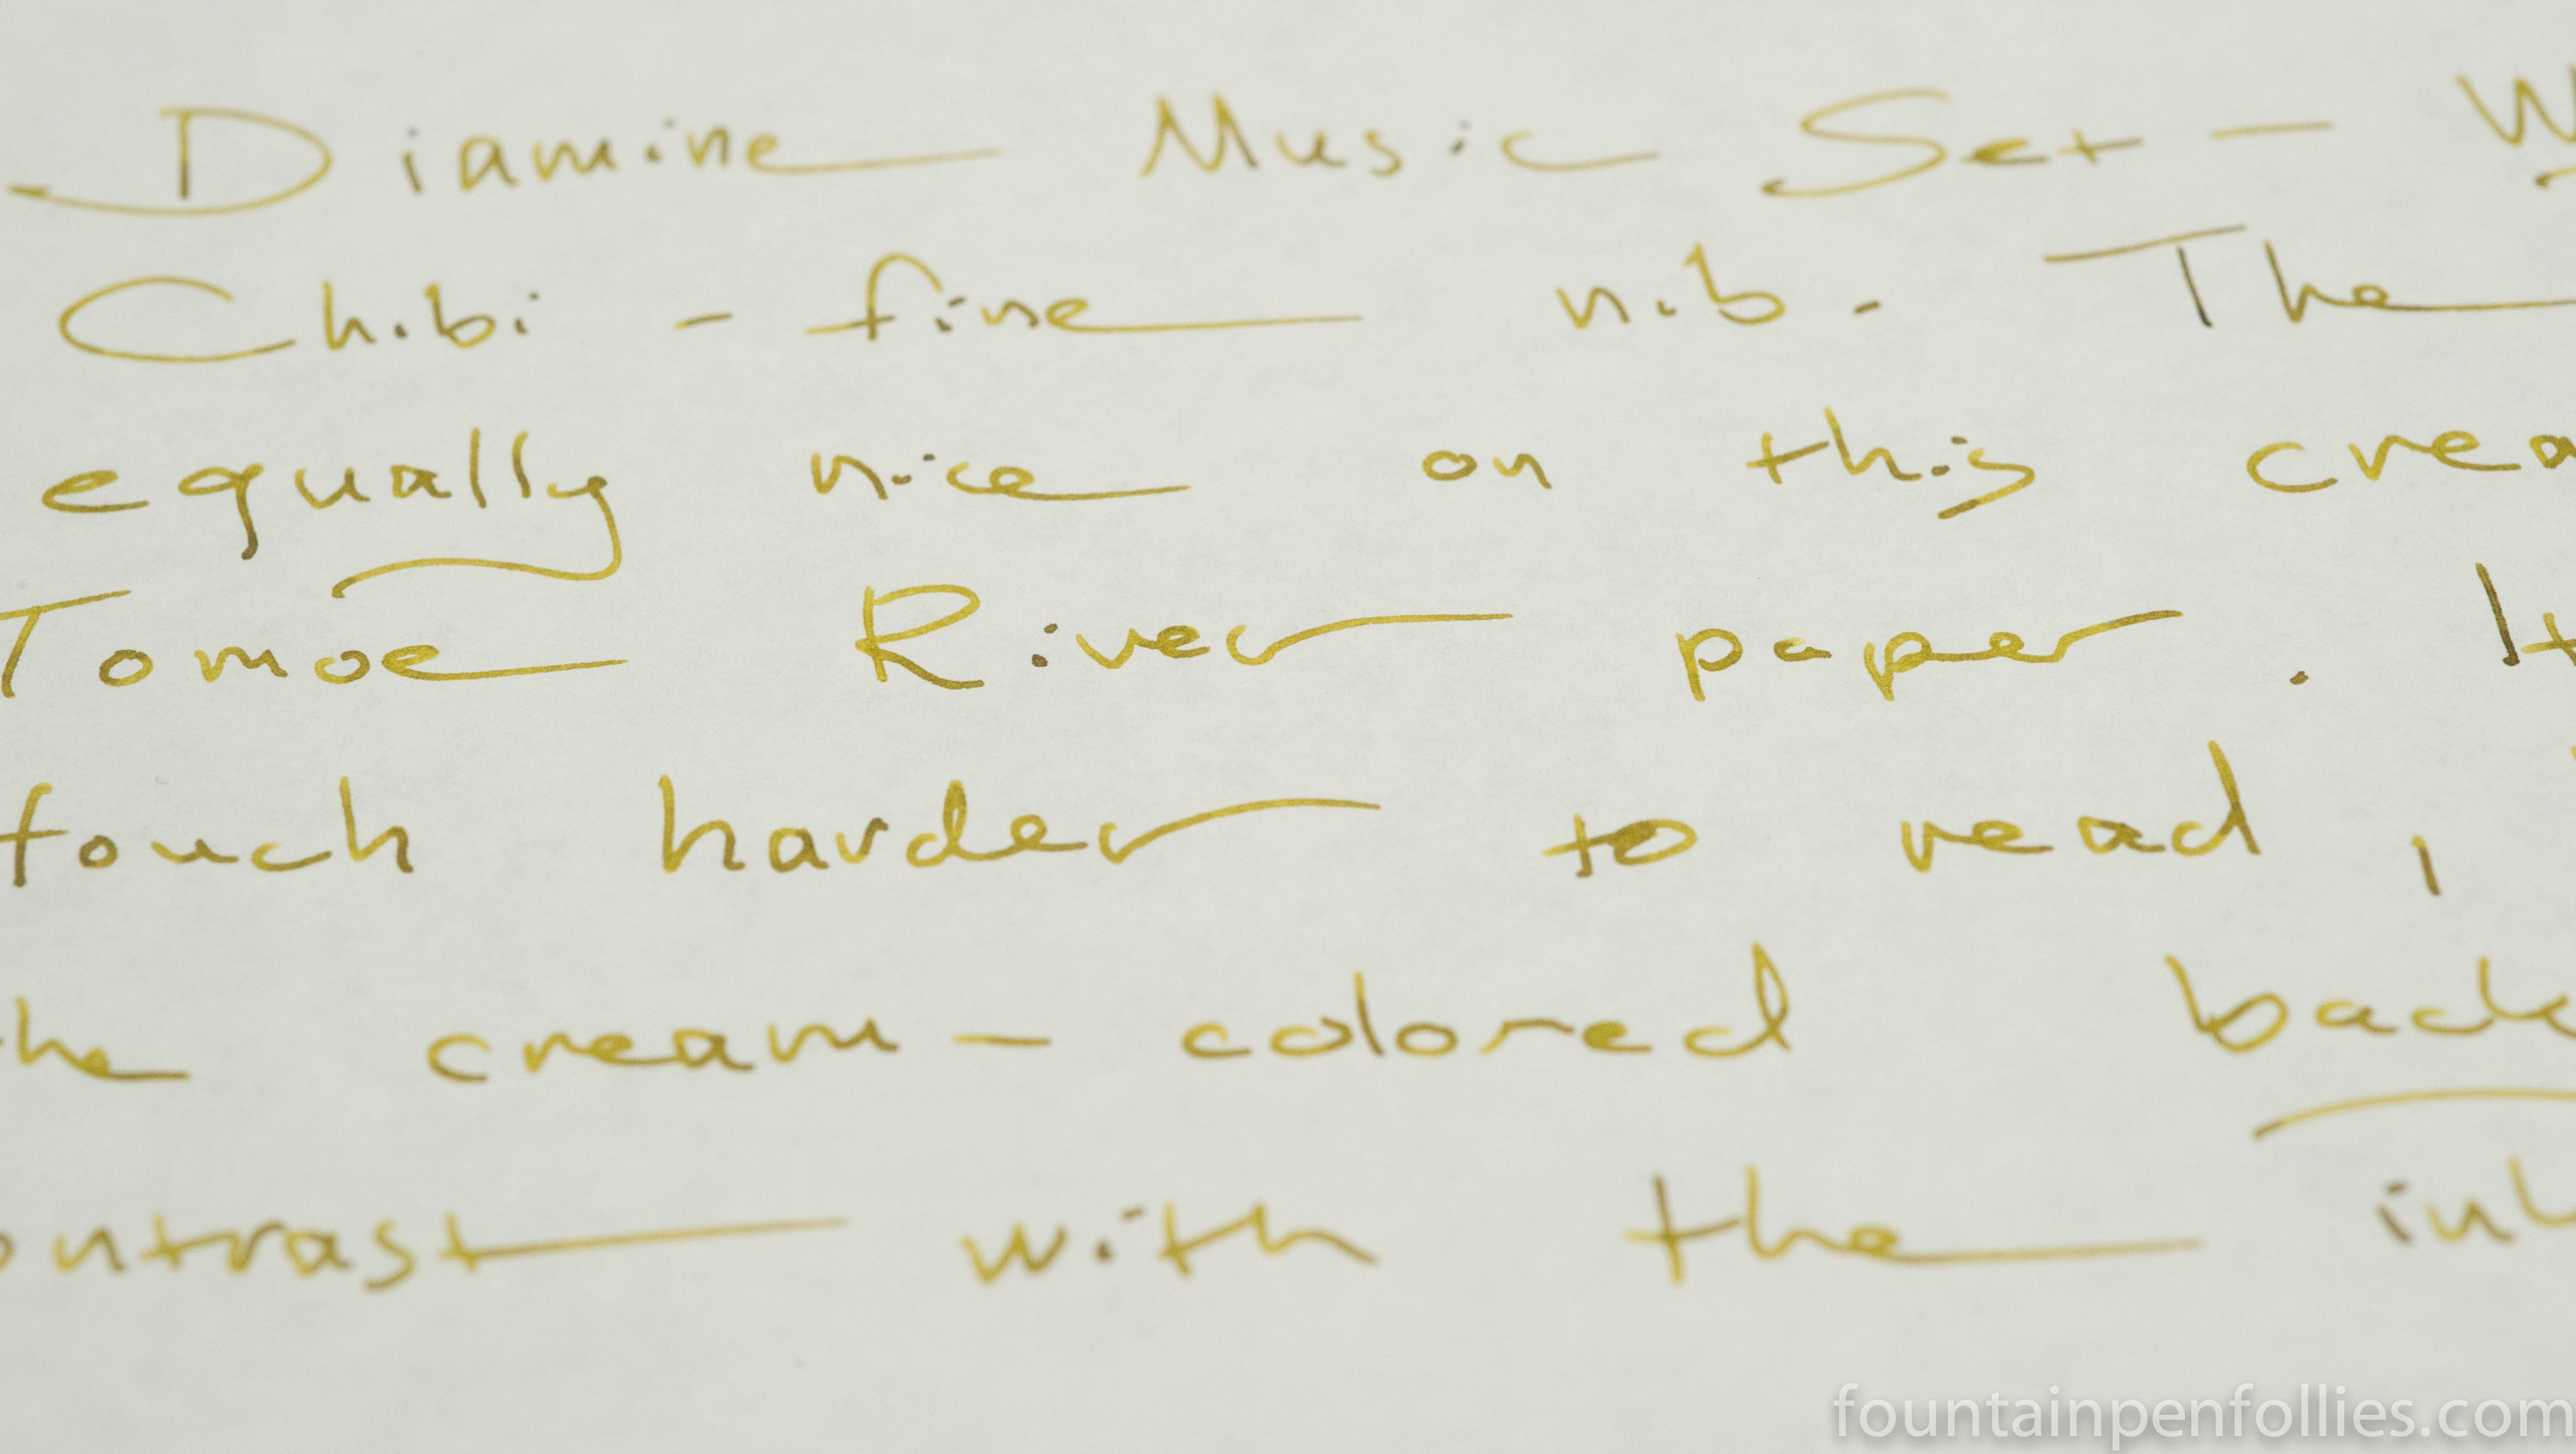 Diamine Music Set — W
Chibi - fine nib. The
equally nice on this crea
Tomoe River paper. It
touch harder to read,
he cream-colored back
ontrast with the ink
fountainpenfollies.com